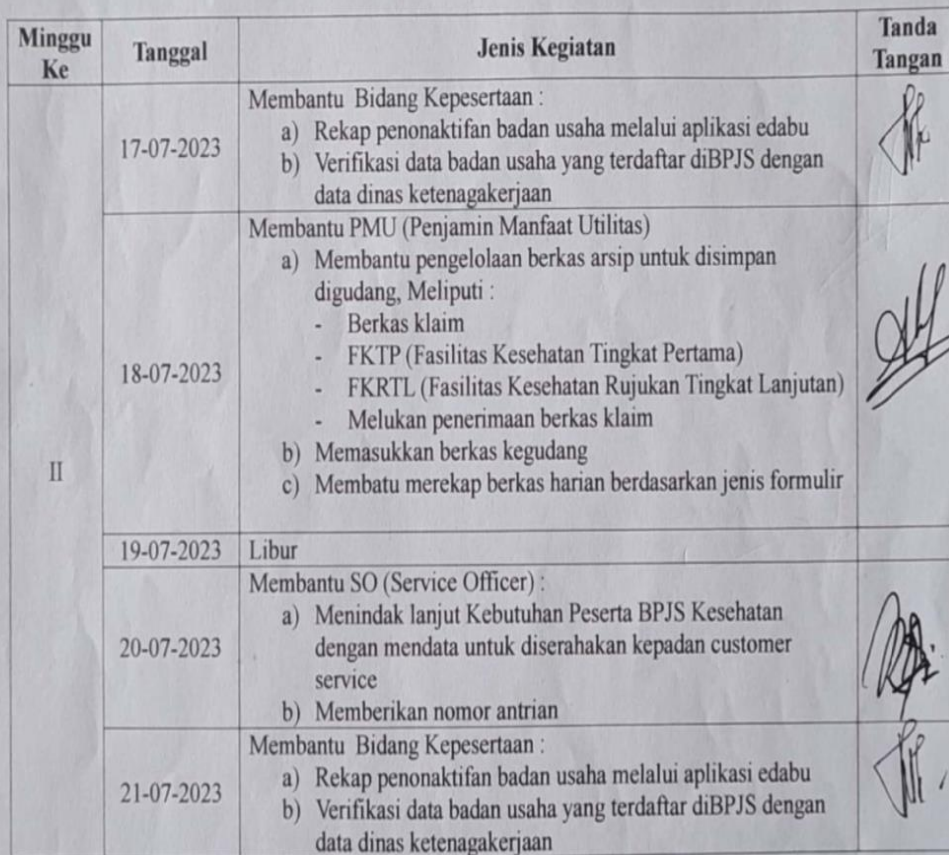 Minggu Ke
Tanggal
Jenis Kegiatan
Tanda Tangan
II
17-07-2023
Membantu Bidang Kepesertaan :
a) Rekap penonaktifan badan usaha melalui aplikasi edabu
b) Verifikasi data badan usaha yang terdaftar diBPJS dengan
data dinas ketenagakerjaan
18-07-2023
Membantu PMU (Penjamin Manfaat Utilitas)
a) Membantu pengelolaan berkas arsip untuk disimpan
digudang, Meliputi :
- Berkas klaim
- FKTP (Fasilitas Kesehatan Tingkat Pertama)
- FKRTL (Fasilitas Kesehatan Rujukan Tingkat Lanjutan)
- Melukan penerimaan berkas klaim
b) Memasukkan berkas kegudang
c) Membatu merekap berkas harian berdasarkan jenis formulir
19-07-2023
Libur
20-07-2023
Membantu SO (Service Officer) :
a) Menindak lanjut Kebutuhan Peserta BPJS Kesehatan
dengan mendata untuk diserahakan kepadan customer
service
b) Memberikan nomor antrian
21-07-2023
Membantu Bidang Kepesertaan :
a) Rekap penonaktifan badan usaha melalui aplikasi edabu
b) Verifikasi data badan usaha yang terdaftar diBPJS dengan
data dinas ketenagakerjaan